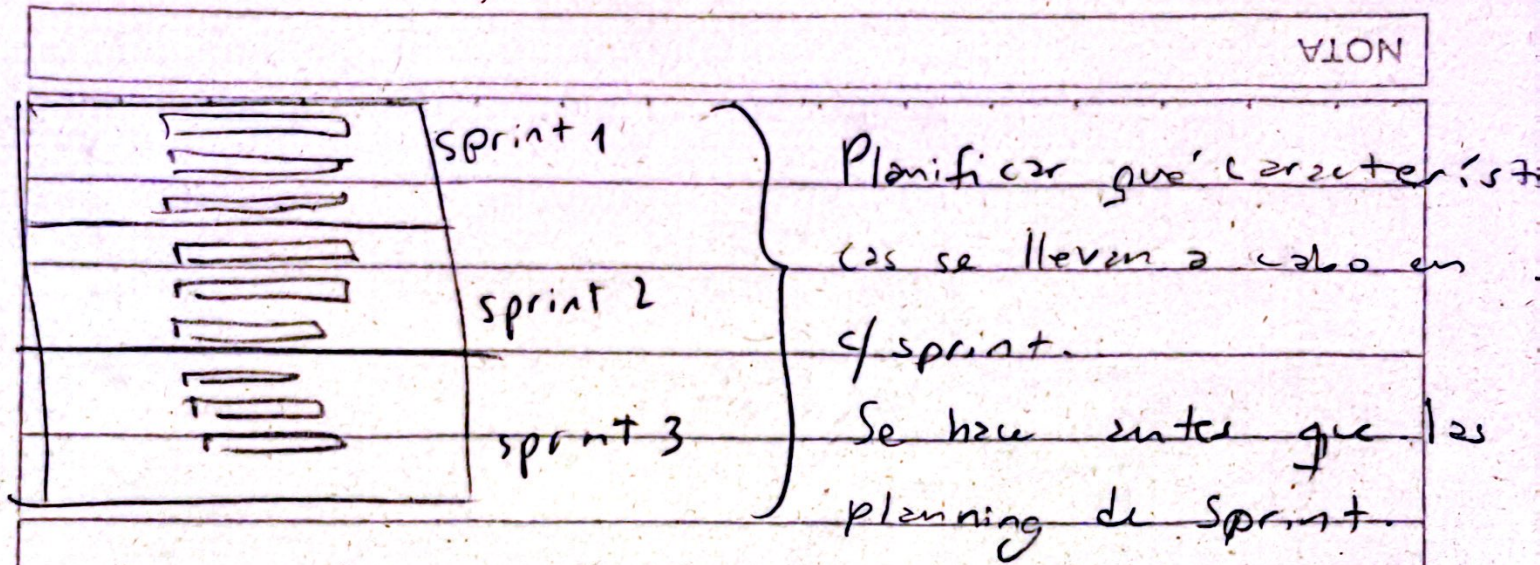 NOTA
sprint 1
sprint 2
sprint 3
Planificar qué característi
cas se llevan a cabo en
c/ sprint.
Se hace antes que las
planning de Sprint.